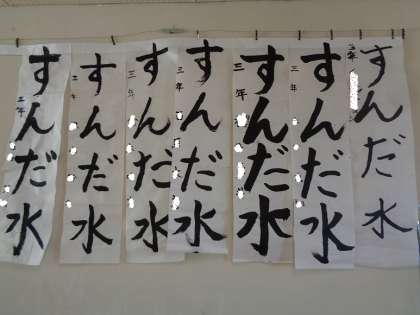 すんだ水
三年
すんだ水
三年
すんだ水
三年
すんだ水
三年
すんだ水
三年
すんだ水
三年
すんだ水
三年